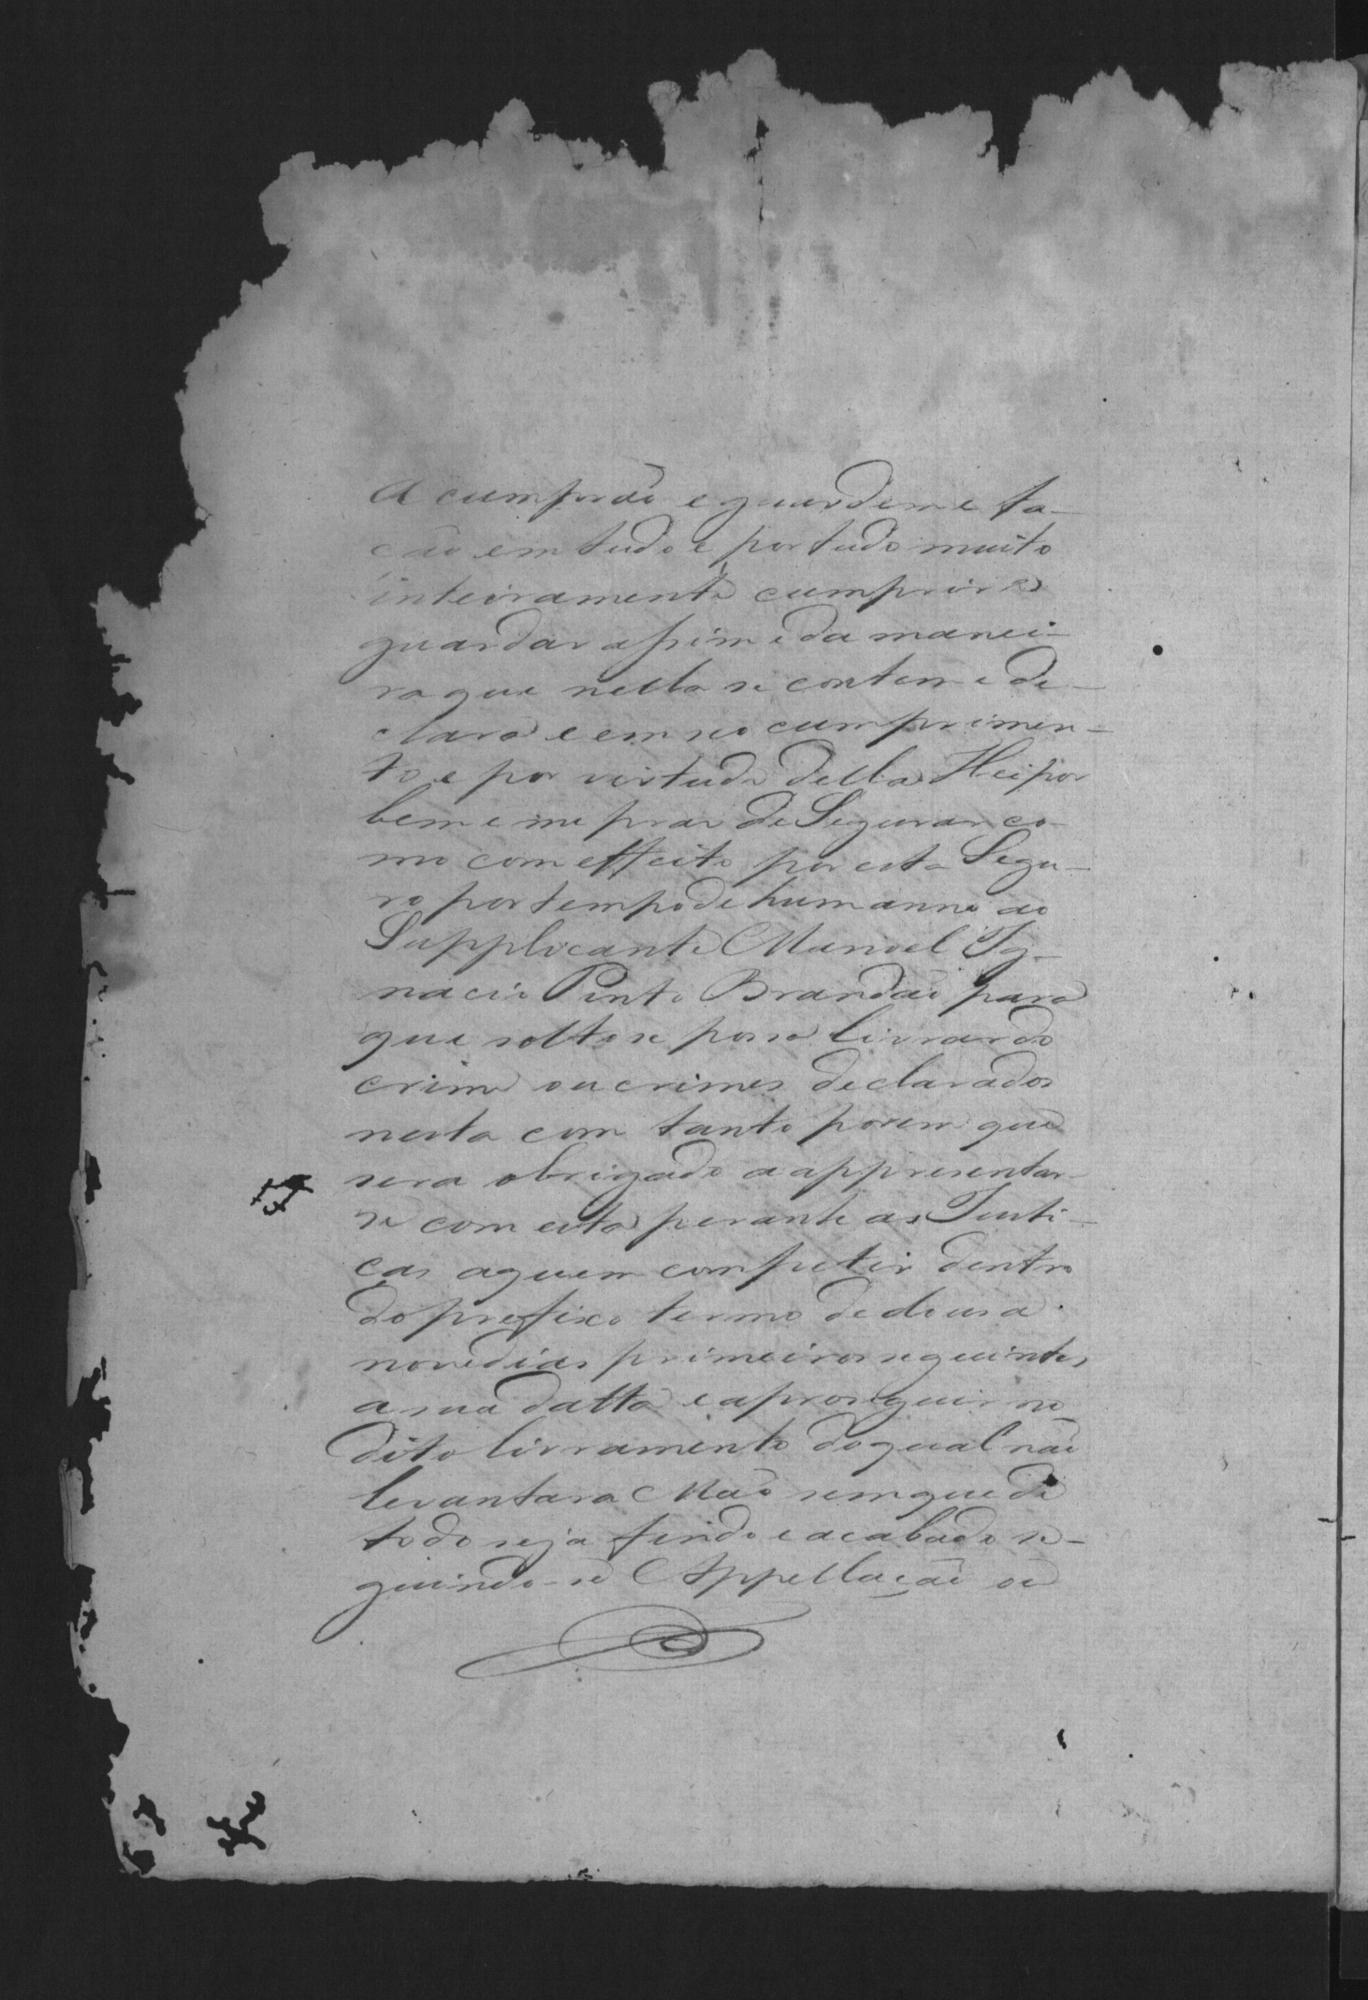 A cumprão e guardem e fa-
ção em tudo e por tudo muito
inteiramente cumprir e
guardar assim e da manei-
ra que nella se contem e de-
clara e em seo cumprimen-
to e por virtude della Hei por
bem e me praz de Segurar co-
mo com effeito por esta Segu-
ro por tempo de hum anno ao
Supplicante Manoel Ig-
nacio Pinto Brandão para
que solto se possa livrar do
crime ou crimes declarados
nesta com tanto porem que
sera obrigado a appresentar-
se com esta perante as Justi-
ças aquem competir dentro
do prefixo termo de
nove dias primeiros seguintes
a sua datta e a proseguir no
dito livramento do qual não
levantara Mão sem que de
todo seja findo e acabado se-
guindo-se Appellação ou